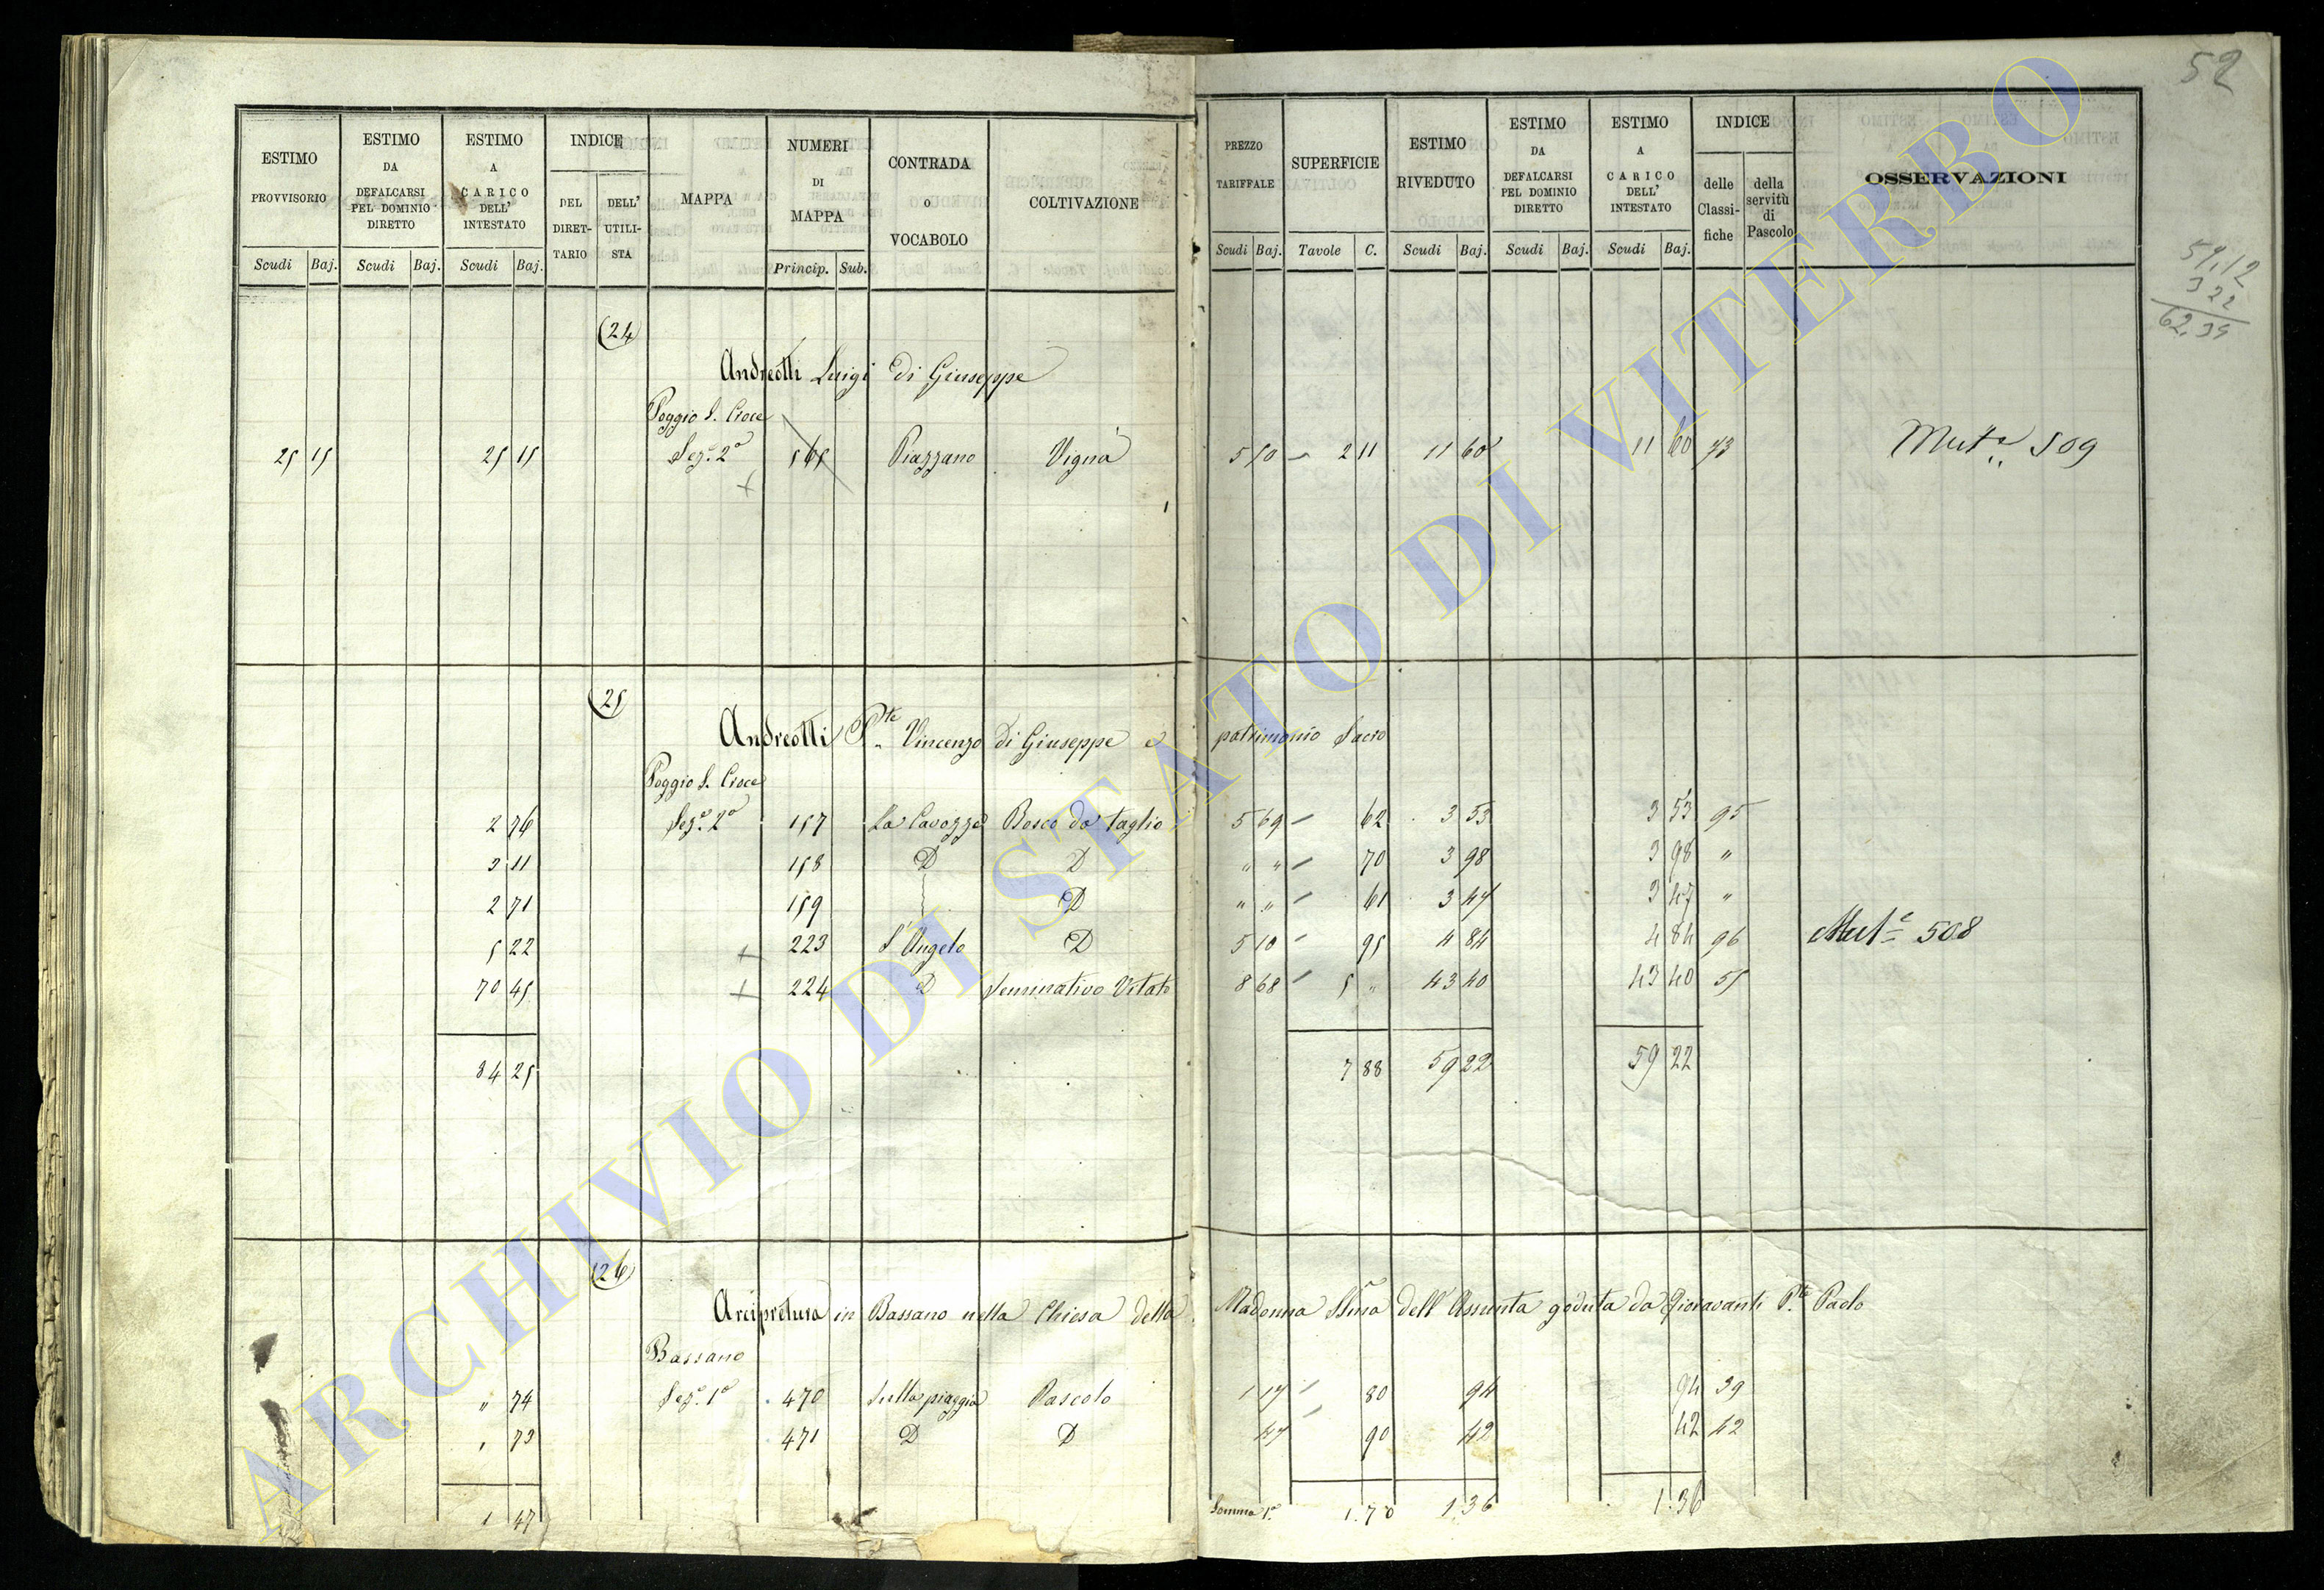 52
ESTIMO PROVVISORIO
ESTIMO DA DEFALCARSI PEL DOMINIO DIRETTO
ESTIMO A CARICO DELL' INTESTATO
INDICE
DEL DIRETTARIO
DELL' UTILISTA
MAPPA
NUMERI DI MAPPA
CONTRADA o VOCABOLO
COLTIVAZIONE
PREZZO TARIFFALE
SUPERFICIE
ESTIMO RIVEDUTO
ESTIMO DA DEFALCARSI PEL DOMINIO DIRETTO
ESTIMO A CARICO DELL' INTESTATO
INDICE
delle Classifiche
della servitù di Pascolo
OSSERVAZIONI
Scudi Baj. Scudi Baj. Scudi Baj. Princip. Sub. Scudi Baj. Tavole C. Scudi Baj. Scudi Baj. Scudi Baj.
59,12
3 22
62,34
24
Andreotti Luigi di Giuseppe
Poggio S. Croce
25 15 25 15 Sez.e 2a 565 Piazzano Vigna 5 50 2 11 11 60 11 60 73 Mut.e 509
25
Andreotti P.te Vincenzo di Giuseppe e patrimonio Sacro
Poggio S. Croce
2 76 Sez.e 2a 157 La Cavozza Bosco da taglio 5 69 62 3 53 3 53 95
3 11 158 D D " " 70 3 98 3 98 "
2 71 159 D " " 61 3 47 3 47 "
5 22 223 S. Angelo D 5 10 95 4 84 4 84 96 Mut.e 508
70 45 224 D Seminativo Vitato 8 68 5 " 43 40 43 40 55
84 25 7 88 59 22 59 22
26
Arcipretura in Bassano nella Chiesa della Madonna SSma dell' Assunta goduta da Gioravanti P.te Paolo
Bassano
" 74 Sez.e 1a 470 Sulla piaggia Pascolo 1 17 80 94 94 39
" 73 471 D D 47 90 42 42 42
1 47 Somma 1a 1.70 1.36 1.36
ARCHIVIO DI STATO DI VITERBO